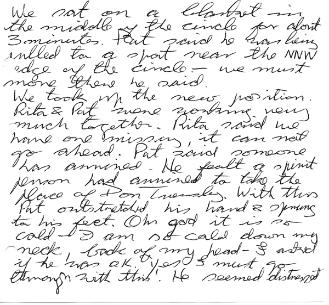 We sat on a blanket in
the middle of the circle for about
3 minutes. Pat said he was being
pulled to a spot near the NNW
edge of the circle - we must
move there he said.
We took up the new position.
Rita & Pat were working very
much together. Rita said we
have one missing, it can not
go ahead. Pat said someone
has arrived. He felt a spirit
person had arrived to take the
place of Tom Tuesday. With this
Pat outstretched his hand & sprung
to his feet. Oh god it is so
cold - I am so cold down my
neck, back of my head - I asked
if he was ok, 'yes I must go
through with this'. He seemed distressed